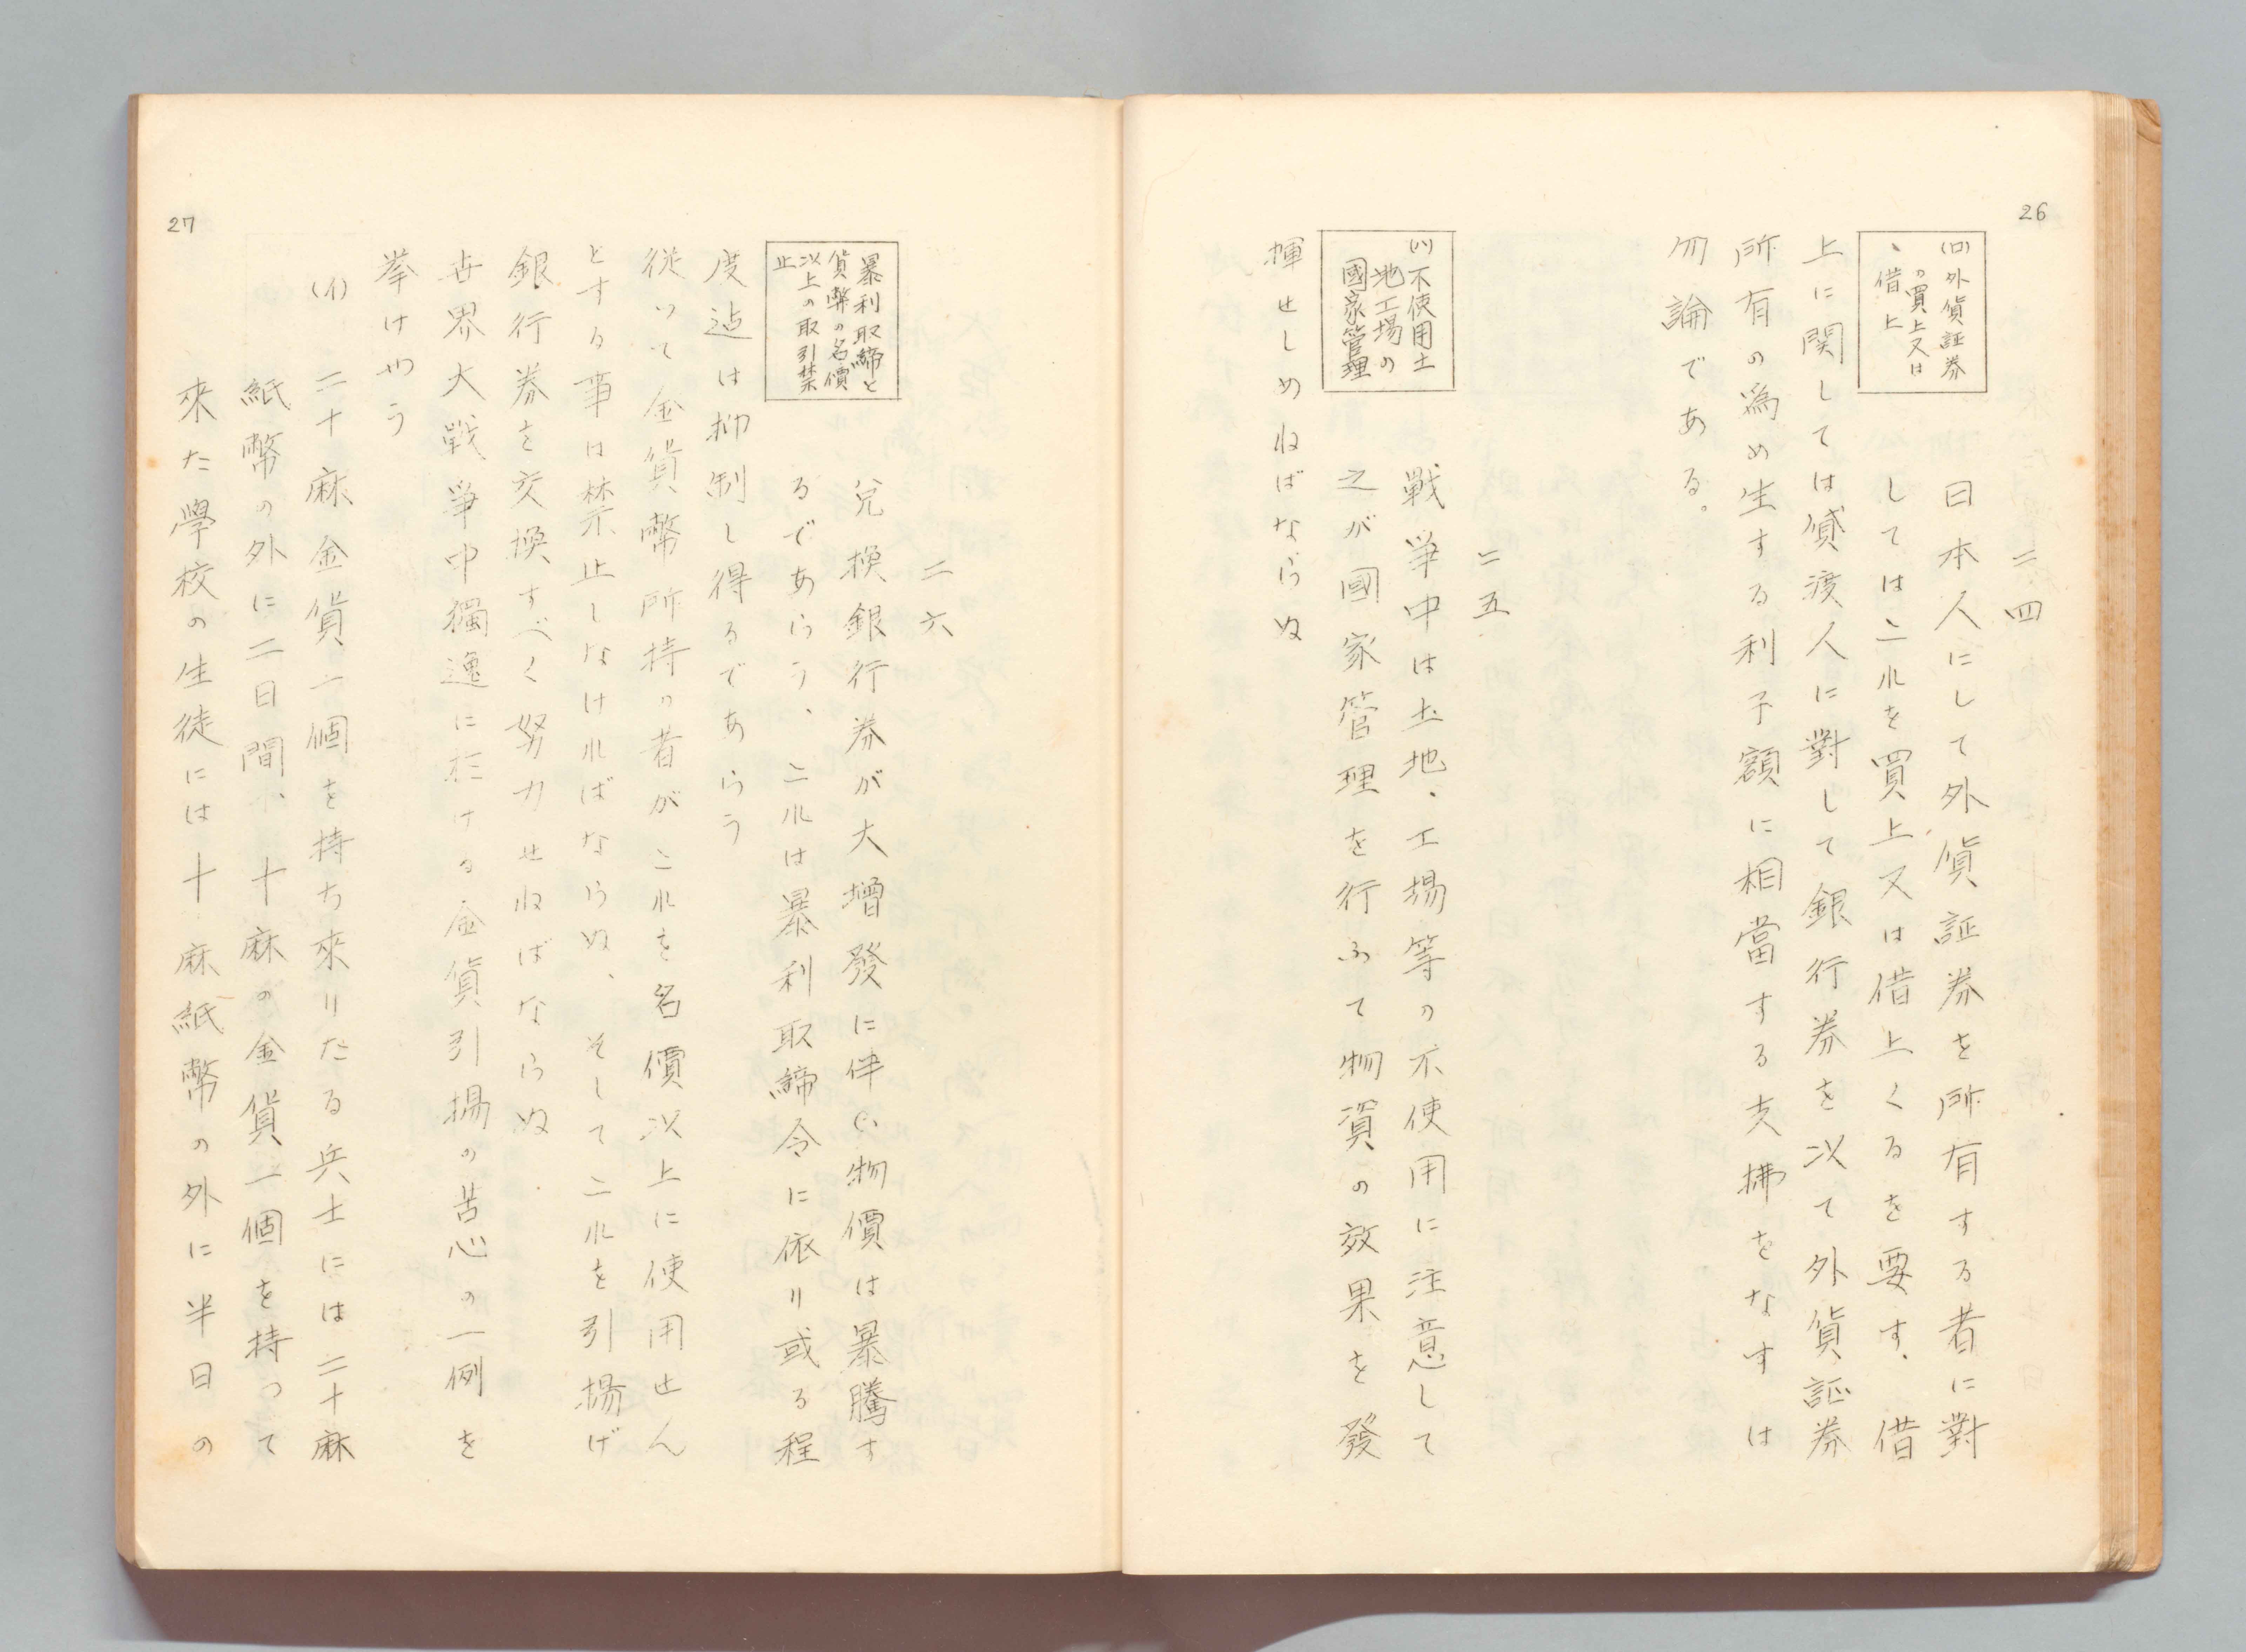 26
二四
(ロ)外貨証券
の買上又は
、借上
日本人にして外貨証券を所有する者に對
しては之れを買上又は借上くるを要す、借
上に関しては貸渡人に對して銀行券を以て外貨証券
所有の為め生する利子額に相當する支拂をなすは
勿論である。
二五
(ハ)不使用土
地工場の
國家管理
戰爭中は土地、工場等の不使用に注意して
之が國家管理を行ふて物資の效果を發
揮せしめねばならぬ
27
二六
暴利取締と
貨幣の名價
以上の取引禁
止
兌換銀行券が大増發に伴ひ物價は暴騰す
るであらう、之れは暴利取締令に依り或る程
度迠は抑制し得るであらう
従いて金貨幣所持の者がこれを名價以上に使用せん
とする事は禁止しなければならぬ、そして之れを引揚げ
銀行券を交換すべく努力せねばならぬ.
世界大戰爭中獨逸に於ける金貨引揚の苦心の一例を
挙けやう
(イ)二十麻金貨一個を持ち來りたる兵士には二十麻
紙幣の外に二日間、十麻の金貨一個を持って
來た學校の生徒には十麻紙幣の外に半日の